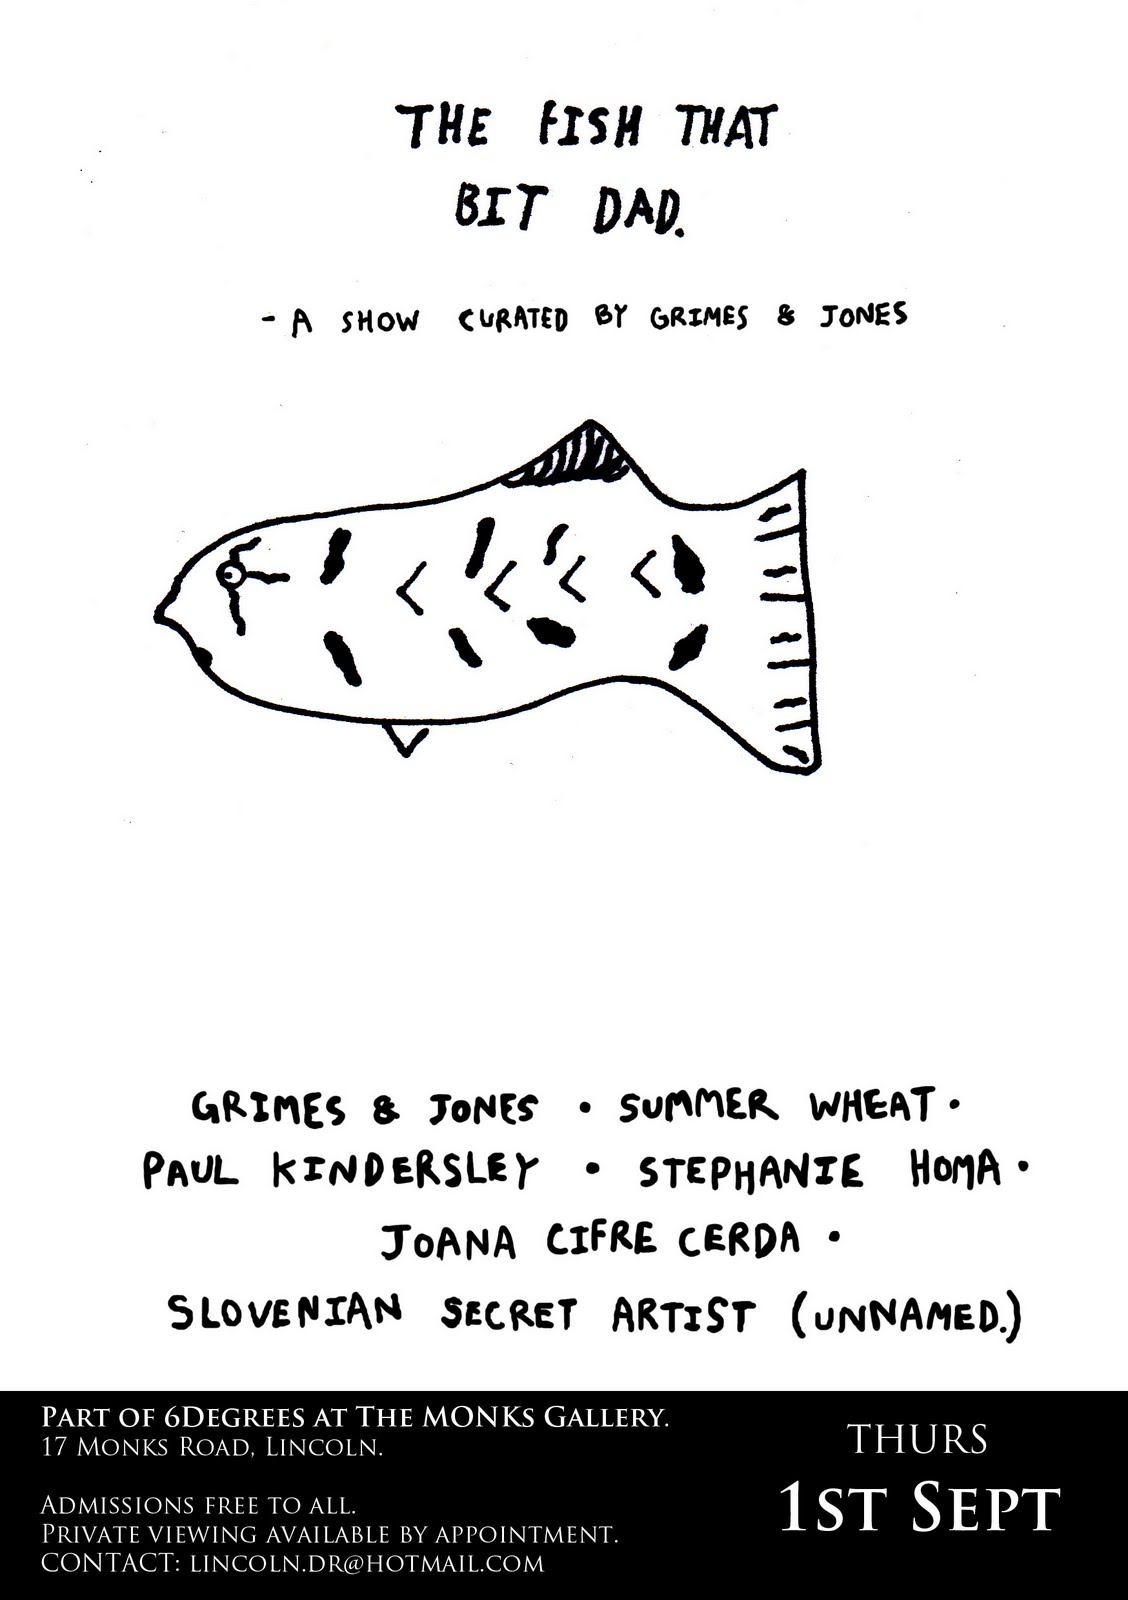 THE FISH THAT
BIT DAD.
- A SHOW CURATED BY GRIMES & JONES
GRIMES & JONES • SUMMER WHEAT •
PAUL KINDERSLEY • STEPHANIE HOMA •
JOANA CIFRE CERDA •
SLOVENIAN SECRET ARTIST (UNNAMED.)
PART OF 6DEGREES AT THE MONKS GALLERY.
17 MONKS ROAD, LINCOLN.
ADMISSIONS FREE TO ALL.
PRIVATE VIEWING AVAILABLE BY APPOINTMENT.
CONTACT: LINCOLN.DR@HOTMAIL.COM
THURS
1ST SEPT